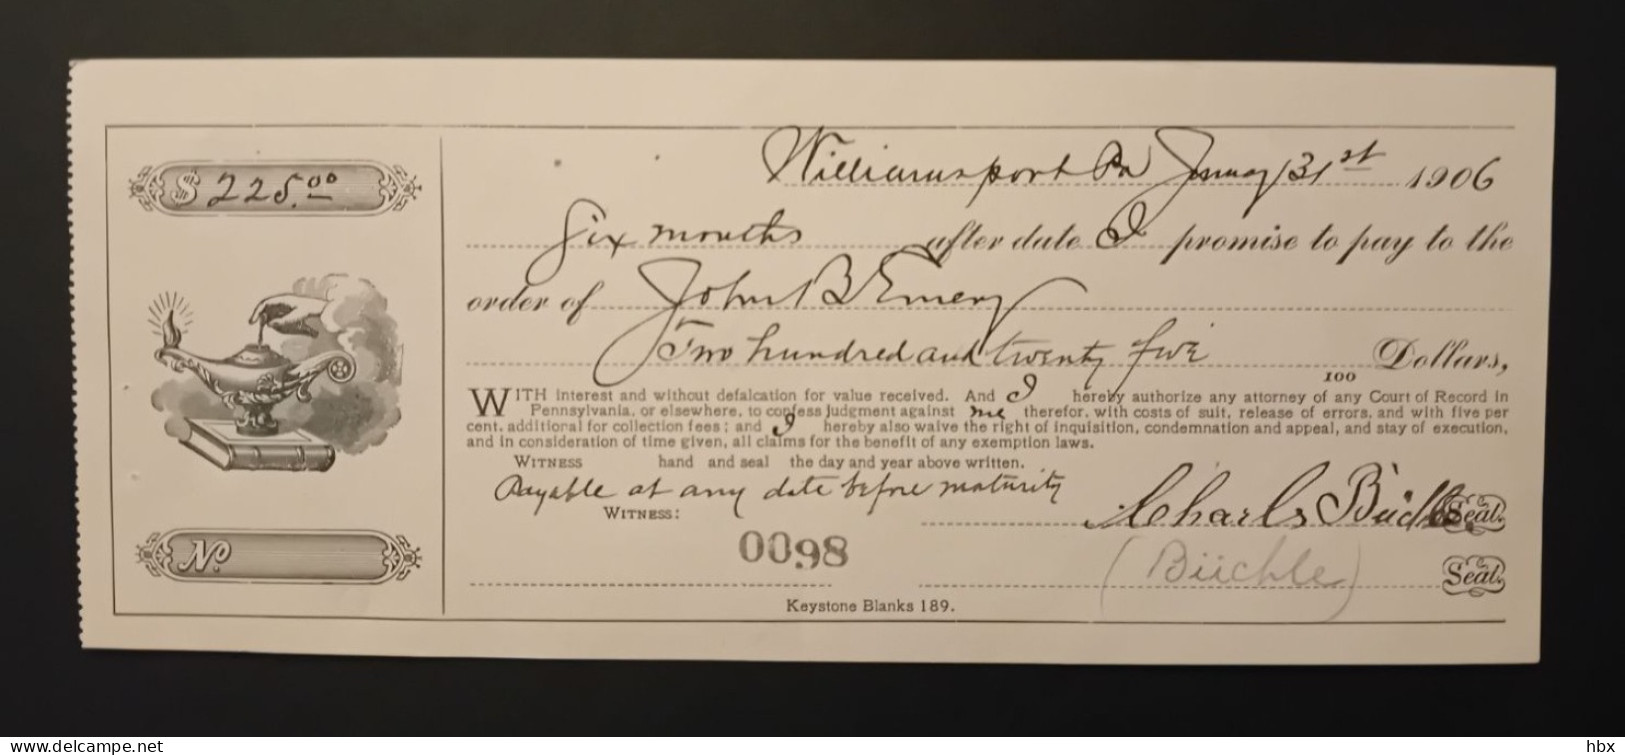 $ 225.00
Williamsport Pa January 31st 1906
Six months after date I promise to pay to the
order of John B Emery
Two hundred and twenty five 100 Dollars,
WITH interest and without defalcation for value received. And I hereby authorize any attorney of any Court of Record in
Pennsylvania, or elsewhere, to confess judgment against me therefor, with costs of suit, release of errors, and with five per
cent. additional for collection fees; and I hereby also waive the right of inquisition, condemnation and appeal, and stay of execution,
and in consideration of time given, all claims for the benefit of any exemption laws.
WITNESS hand and seal the day and year above written.
Payable at any date before maturity
WITNESS: Charls Büchle Seal.
No.
0098
(Büchle) Seal.
Keystone Blanks 189.
www.delcampe.net
hbx